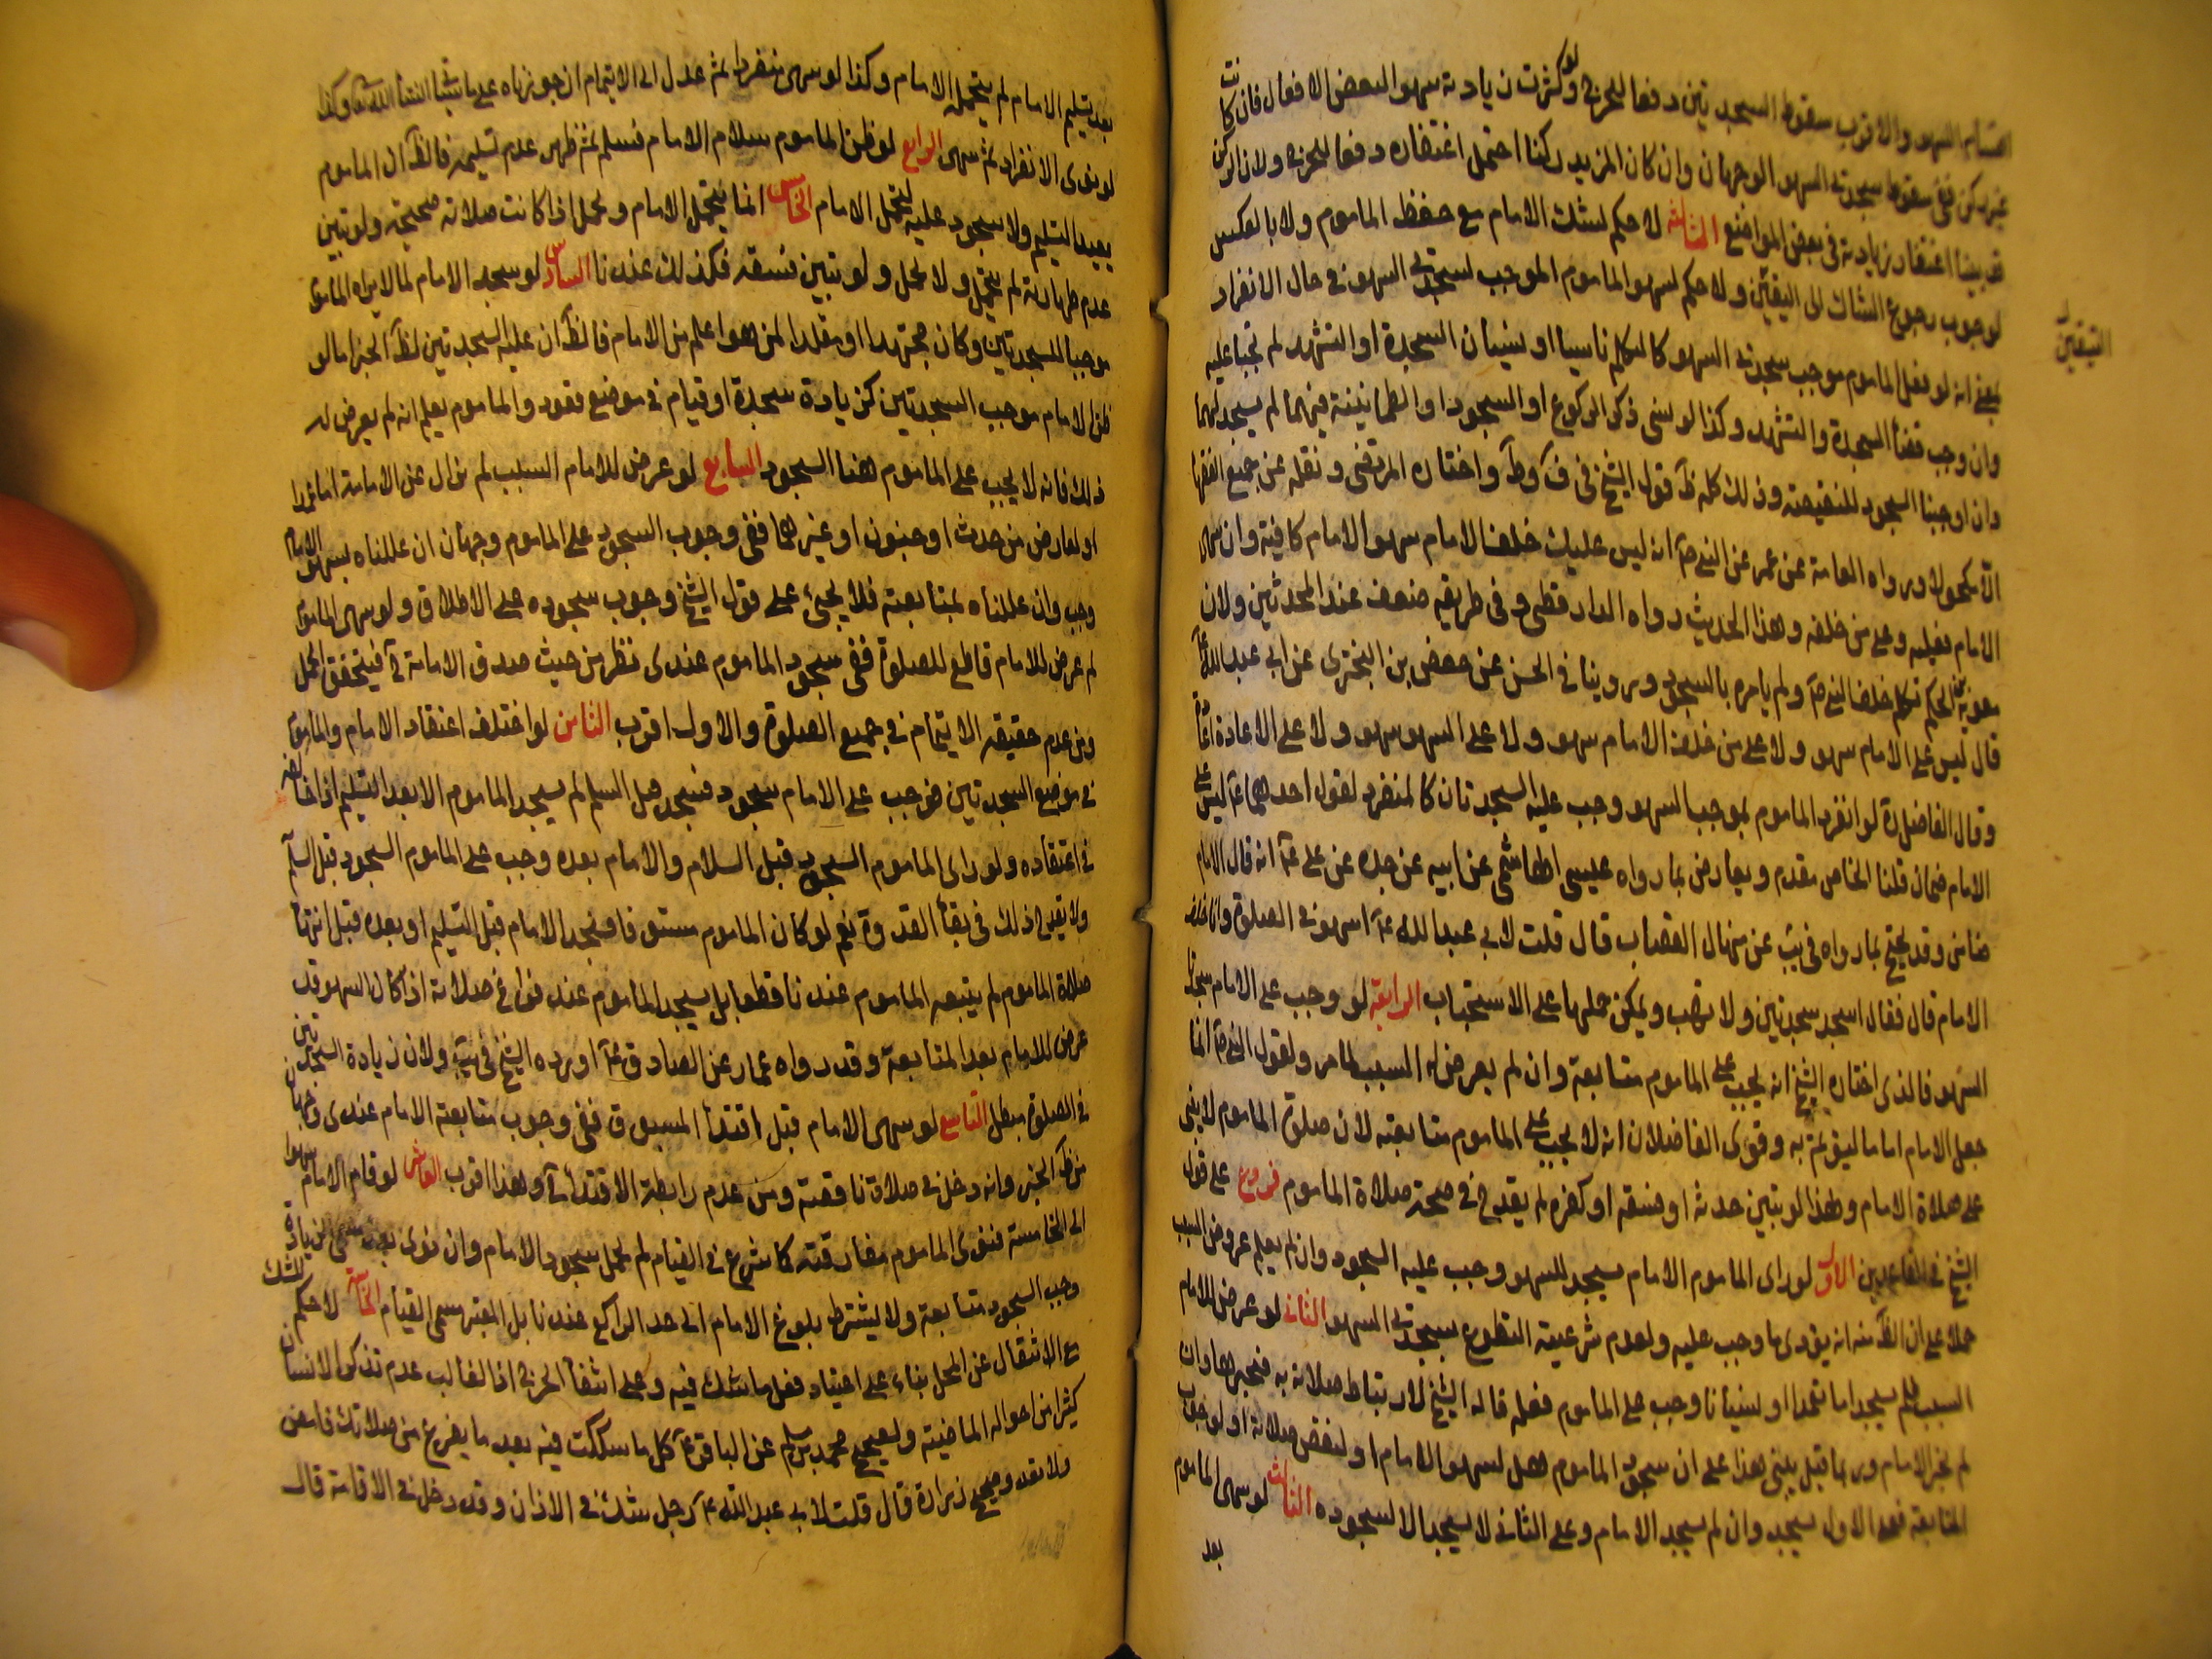 اقسام السهو والاقرب سقوط السجدتين دفعا للحرج ولو كثرت زيادته سهو البعض الافعال فان كانت
غير ركن ففي سقوط سجدتي السهو الوجهان وان كان المزيد ركنا احتمل اغتفاره دفعا للحرج ولان الركن
قد بينا اغتفار زيادته في بعض المواضع الثالثة لا حكم لشك الامام مع حفظ الماموم ولا بالعكس
لوجوب رجوع الشاك الى اليقين ولا حكم لسهو الماموم الموجب لسجدتي السهو في حال الانفراد
بمعنى انه لو فعل الماموم موجب سجدتي السهو كالتكلم ناسيا او نسيان السجدة او التشهد لم تجبا عليه
وان وجب قضأ السجدة والتشهد وكذا لو نسى ذكر الركوع او السجود او الطمانينة فيهما لم يسجد لهما
وان اوجبنا السجود للنقيصة وذلك كله ظ قول الشيخ في ف وط واختاره المرتضى ونقله عن جميع الفقها
الا مكحولا ورواه العامة عن عمر عن النبي ص انه ليس عليك خلف الامام سهو الامام كافيه وان سهى
الامام فعليه وعلى من خلفه وهذا الحديث رواه الدارقطني وفي طريقه ضعف عند المحدثين ولان
معوية بن الحكم تكلم خلف النبي ص ولم يامره بالسجود وروينا في الحسن عن حفص بن البختري عن ابي عبد الله ع
قال ليس على الامام سهو ولا على من خلف الامام سهو ولا على السهو سهو ولا على الاعادة اعادة
وقال الفاضل ره لو انفرد الماموم بموجب السهو وجب عليه السجدتان كالمنفرد لقول احدهما ع ليس على
الامام ضمان قلنا الخاص مقدم ويعارض بما رواه عليسى الهاشمي عن ابيه عن جده عن علي ع انه قال الامام
ضامن وقد يحتج بما رواه في يب عن منهال القصاب قال قلت لابي عبد الله ع اسهو في الصلوة وانا خلف
الامام قال فقال اسجد سجدتين ولا تهب ويمكن حملها على الاستحباب الرابعة لو وجب على الامام سجدتا
السهو فالذي اختاره الشيخ انه يجب على الماموم متابعته وان لم يعرض له السبب لما مر ولقول النبي ص انما
جعل الامام اماما ليؤتم به وقوى الفاضلان انه لا يجب على الماموم متابعته لان صلوة الماموم لا يبنى
على صلاة الامام ولهذا لو تبين حدثه او فسقه او كفره لم يقدح في صحة صلاة الماموم فروع على قول
الشيخ في القاعدين الاول لو راى الماموم الامام يسجد للسهو وجب عليه السجود وان لم يعلم عروض السبب
حملا على ان الظ منه انه يؤدى ما وجب عليه ولعدم شرعية التطوع بسجدتي السهو الثاني لو عرض للامام
السبب فلم يسجد اما تعمدا او نسيانا وجب على الماموم فعله قاله الشيخ لارتباط صلاته به فيجبرها وان
لم يجبر الامام وربما قيل يبنى هذا على ان سجود الماموم هل لسهو الامام او لنقص صلاته او لوجوب
المتابعة فعلى الاول يسجد وان لم يسجد الامام وعلى الثاني لا يسجد الا لسجوده الثالث لو سهى الماموم
بعد
التيقين
بعد تسليم الامام لم يتحمله الامام وكذا لو سهى منفردا ثم عدل الى الايتمام ان جوزناه وكذا
لو نوى الانفراد ثم سهى الرابع لو ظن الماموم سلام الامام فسلم ثم ظهر عدم تسليمه فالظ ان الماموم
يعيد التسليم ولا سجود عليه لتحمل الامام الخامس انما يتحمل الامام ويحمل اذا كانت صلاته صحيحة ولو تبين
عدم طهارته لم يتحمل ولا يحمل ولو تبين فسقه فكذلك عندنا السادس لو سجد الامام لما لا يراه الماموم
موجبا للسجدتين وكان مجتهدا او مقلدا لمن هو اعلم من الامام فالظ ان عليه السجدتين لظ الخبر اما لو
ظن الامام موجب السجدتين كزيادة سجدة او قيام في موضع قعود والماموم يعلم انه لم يعرض له
ذلك فانه لا يجب على الماموم هنا السجود السابع لو عرض للامام السبب ثم زال عن الامامة اما عمدا
او لعارض من حدث او جنون او غيرهما ففي وجوب السجود على الماموم وجهان ان عللناه بسهو الامام
وجب وان عللناه بمتابعته فلا يجئ على قول الشيخ وجوب سجوده على الاطلاق ولو سهى الماموم
ثم عرض للامام قاطع للصلوة ففي سجود الماموم عندى نظر من حيث صدق الامامة ح فيتحقق التحمل
ومن عدم حقيقة الايتمام في جميع الصلوة والاول اقرب الثامن لو اختلف اعتقاد الامام والماموم
في موضع السجدتين فوجب على الامام سجود فسجد قبل السلم لم يسجد الماموم الا بعد التسليم اذا خالفه
في اعتقاده ولو راى الماموم السجود قبل السلام والامام بعده وجب على الماموم السجود قبل السلم
ولا يقدح ذلك في بقأ القدوة نعم لو كان الماموم مسبوقا فسجد الامام قبل التسليم او بعده قبل انتهأ
صلاة الماموم لم يتبعه الماموم عندنا قطعا بل يسجد الماموم عند فراغ صلاته اذا كان السهو قد
عرض للامام بعد المتابعة وقد رواه عمار عن الصادق ع اورده الشيخ في يب ولان زيادة السجدتين
في الصلوة مبطل التاسع لو سهى الامام قبل اقتدأ المسبوق ففي وجوب متابعة الامام عندى وجهان
من ظ الخبر وانه دخل في صلاة ناقصة ومن عدم رابطة الاقتدأ ح وهذا اقرب العاشر لو قام الامام سهوا
الى الخامسة فنوى الماموم مفارقته كما شرع في القيام لم يحمل سجود الامام وان نوى بعد مسمى الزيادة
وجب السجود متابعة ولا يشترط بلوغ الامام الى حد الراكع عندنا بل المعتبر مسمى القيام الخامسة لا حكم للشك
مع الانتقال عن المحل بناء على اعتياد فعل ما شك فيه وعلى انتفأ الحرج اذ الغالب عدم تذكر الانسان
كثيرا من احواله الماضية ولصحيح محمد بن مسلم عن الباقر ع كل ما شككت فيه بعد ما يفرغ من صلاتك فامض
ولا تعد وصحيح زرارة قال قلت لابي عبد الله ع رجل شك في الاذان وقد دخل في الاقامة قال